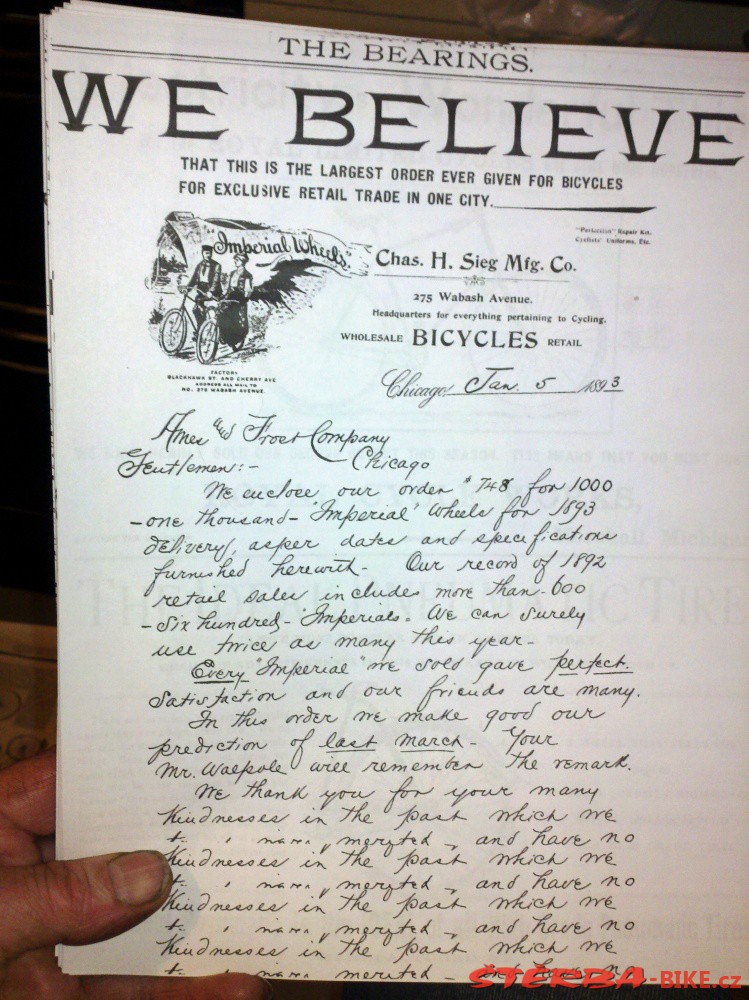 THE BEARINGS.
WE BELIEVE
THAT THIS IS THE LARGEST ORDER EVER GIVEN FOR BICYCLES
FOR EXCLUSIVE RETAIL TRADE IN ONE CITY.
"Imperial Wheels."
"Perfection" Repair Kit.
Cyclists' Uniforms, Etc.
Chas. H. Sieg Mfg. Co.
275 Wabash Avenue.
Headquarters for everything pertaining to Cycling.
WHOLESALE BICYCLES RETAIL
FACTORY
BLACKHAWK ST. AND CHERRY AVE
ADDRESS ALL MAIL TO
NO. 275 WABASH AVENUE.
Chicago, Jan. 5 1893
Ames and Frost Company
Chicago
Gentlemen:-
We enclose our order #748 for 1000
-one thousand- "Imperial" Wheels for 1893
delivery, as per dates and specifications
furnished herewith- Our record of 1892
retail sales includes more than-600
-Six hundred- "Imperials". We can surely
use twice as many this year-
Every "Imperial" we sold gave perfect.
Satisfaction and our friends are many.
In this order we make good our
prediction of last march- Your
Mr. Walpole will remember the remark.
We thank you for your many
Kindnesses in the past which we
meryted, and have no
Kindnesses in the past which we
meryted, and have no
Kindnesses in the past which we
meryted, and have no
Kindnesses in the past which we
meryted
ŠTERBA-BIKE.cz